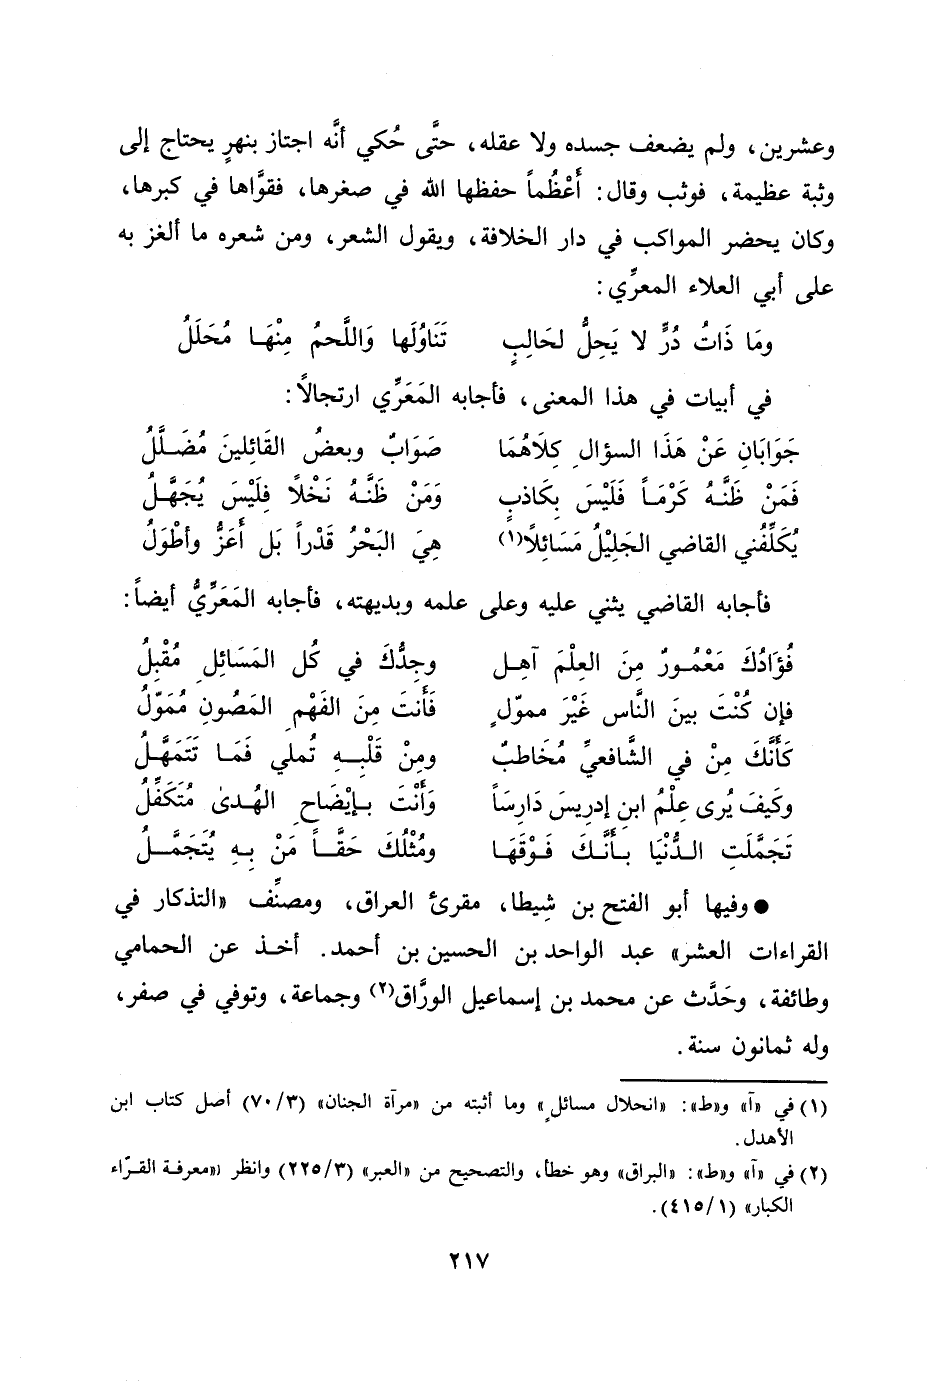 وعشرين، ولم يضعف جسده ولا عقله، حتَّى حُكي أنَّه اجتاز بنهرٍ يحتاج إلى
وثبة عظيمة، فوثب وقال: أَعْظُماً حفظها الله في صغرها، فقوَّاها في كبرها،
وكان يحضر المواكب في دار الخلافة، ويقول الشعر، ومن شعره ما ألغز به
على أبي العلاء المعرِّي:
ومَا ذَاتُ دُرٍّ لا يَحِلُّ لحَالِبٍ تَنَاوُلَها وَاللَّحمُ مِنْهَا مُحَلَلُ
في أبيات في هذا المعنى، فأجابه المَعَرِّي ارتجالاً:
جَوَابَانِ عَنْ هَذَا السؤالِ كِلَاهُمَا صَوَابٌ وبعضُ القَائِلينَ مُضَلَّلُ
فَمَنْ ظَنَّهُ كَرْمَاً فَلَيْسَ بِكَاذبٍ وَمَنْ ظَنَّهُ نَخْلاً فِلَيْسَ يُجَهَّلُ
يُكَلِّفُني القاضي الجَلِيْلُ مَسَائِلاً(١) هِيَ البَحْرُ قَدْراً بَل أَعَزُّ وأطْوَلُ
فأجابه القاضي يثني عليه وعلى علمه وبديهته، فأجابه المَعَرِّيُّ أيضاً:
فُؤَادُكَ مَعْمُورٌ مِنَ العِلْمَ آهِل وجِدُّكَ في كُل المَسَائلِ مُقْبِلُ
فإن كُنْتَ بينَ النَّاس غَيْرَ مموّلٍ فَأَنتَ مِنَ الفَهْمِ المَصُونِ مُمَوّلُ
كَأَنَّكَ مِنْ في الشَّافعيِّ مُخَاطبٌ ومِنْ قَلْبِهِ تُملي فَمَا تَتَمَهَّلُ
وكَيفَ يُرى عِلْمُ ابنِ إدريسَ دَارِسَاً وَأَنْتَ بِإيْضَاحِ الهُدىٰ مُتَكَفِّلُ
تَجمَّلَتِ الدُّنْيَا بِأَنَّكَ فَوْقَهَا ومُثْلُكَ حَقَّاً مَنْ بِهِ يُتَجمَّلُ
● وفيها أبو الفتح بن شِيطا، مقرئ العراق، ومصنِّف «التذكار في
القراءات العشر» عبد الواحد بن الحسين بن أحمد. أخذ عن الحمامي
وطائفة، وحَدَّث عن محمد بن إسماعيل الورَّاق(٢) وجماعة، وتوفي في صفر،
وله ثمانون سنة.
(١) في «آ» و«ط»: «انحلال مسائلٍ» وما أثبته من «مرآة الجنان» (٣/ ٧٠) أصل كتاب ابن
الأهدل.
(٢) في «آ» و«ط»: «البراق» وهو خطأ، والتصحيح من «العبر» (٣/ ٢٢٥) وانظر («معرفة القرّاء
الكبار» (١/ ٤١٥).
٢١٧